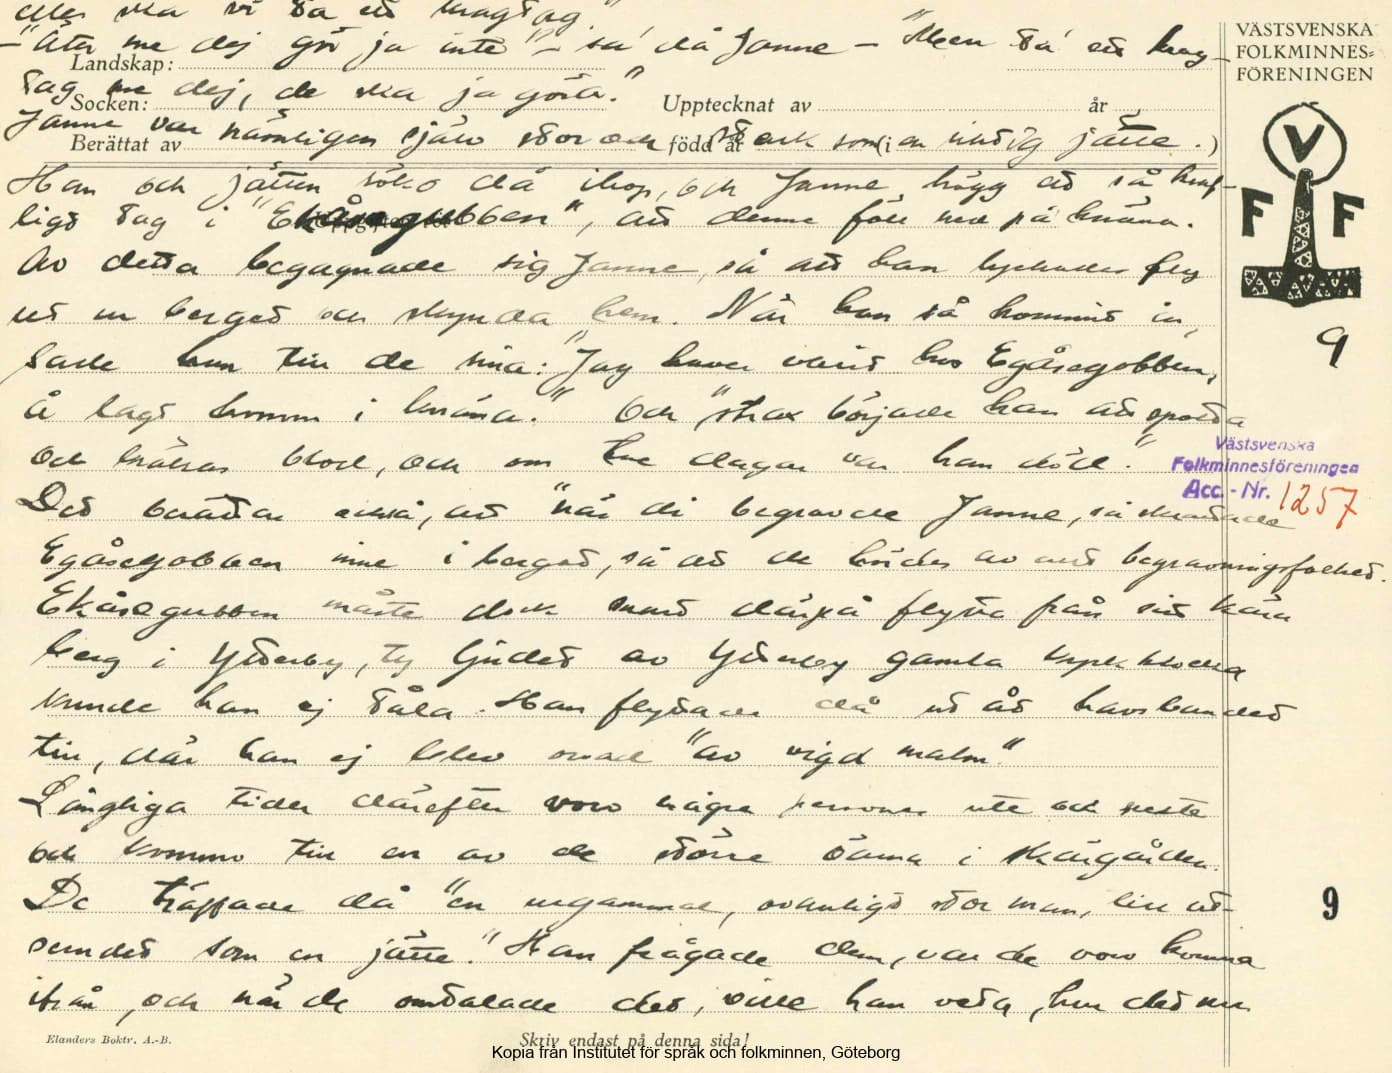 eller ska vi ta ett kragtag."
—"Äter me dej gör ja inte" — sa då Janne — "Men ta ett krag-
tag me dej, de ska ja göra."
Janne var nämligen själv stor och stark som en riktig jätte.
Landskap:
Socken:
Upptecknat av
år
Berättat av
född år
(i
)
Han och jätten då ihop, och Janne högg ett så kraf-
ligt tag i "Ekåsegubben", att denne föll ned på knäna.
Av detta begagnade sig Janne, så att han lyckades fly
ut ur berget och skynda hem. När han så kommit in,
sade han till de sina: "Jag haver varit hos Egåsegobben,
å lagt honom i knäna." Och "strax började han att spotta
och kräkas blod, och om tre dagar var han död."
Det berättas också, att "när di begravde Janne, så skrattade
Egåsegobben inne i berget, så att de hördes av allt begravningsfolket.
Ekåsegubben måste dock snart därpå flytta från sitt kära
berg i Ytterby, ty ljudet av Ytterby gamla kyrkklocka
kunde han ej tåla. Han flyttade då ut åt havsbandet
till, där han ej blev oroad "av vigd malm."
Långliga tider därefter voro några personer ute och seglade
och kommo till en av de större öarna i skärgården.
De träffade då "en urgammal, ovanligt stor man, lik ut-
seendet som en jätte." Han frågade dem, var de voro komna
ifrån, och när de omtalade det, ville han veta, hur det nu
VÄSTSVENSKA
FOLKMINNES=
FÖRENINGEN
V
F F
9
Västsvenska
Folkminnesföreningen
Acc.-Nr. 1257
9
Elanders Boktr. A.-B.
Skriv endast på denna sida!
Kopia från Institutet för språk och folkminnen, Göteborg